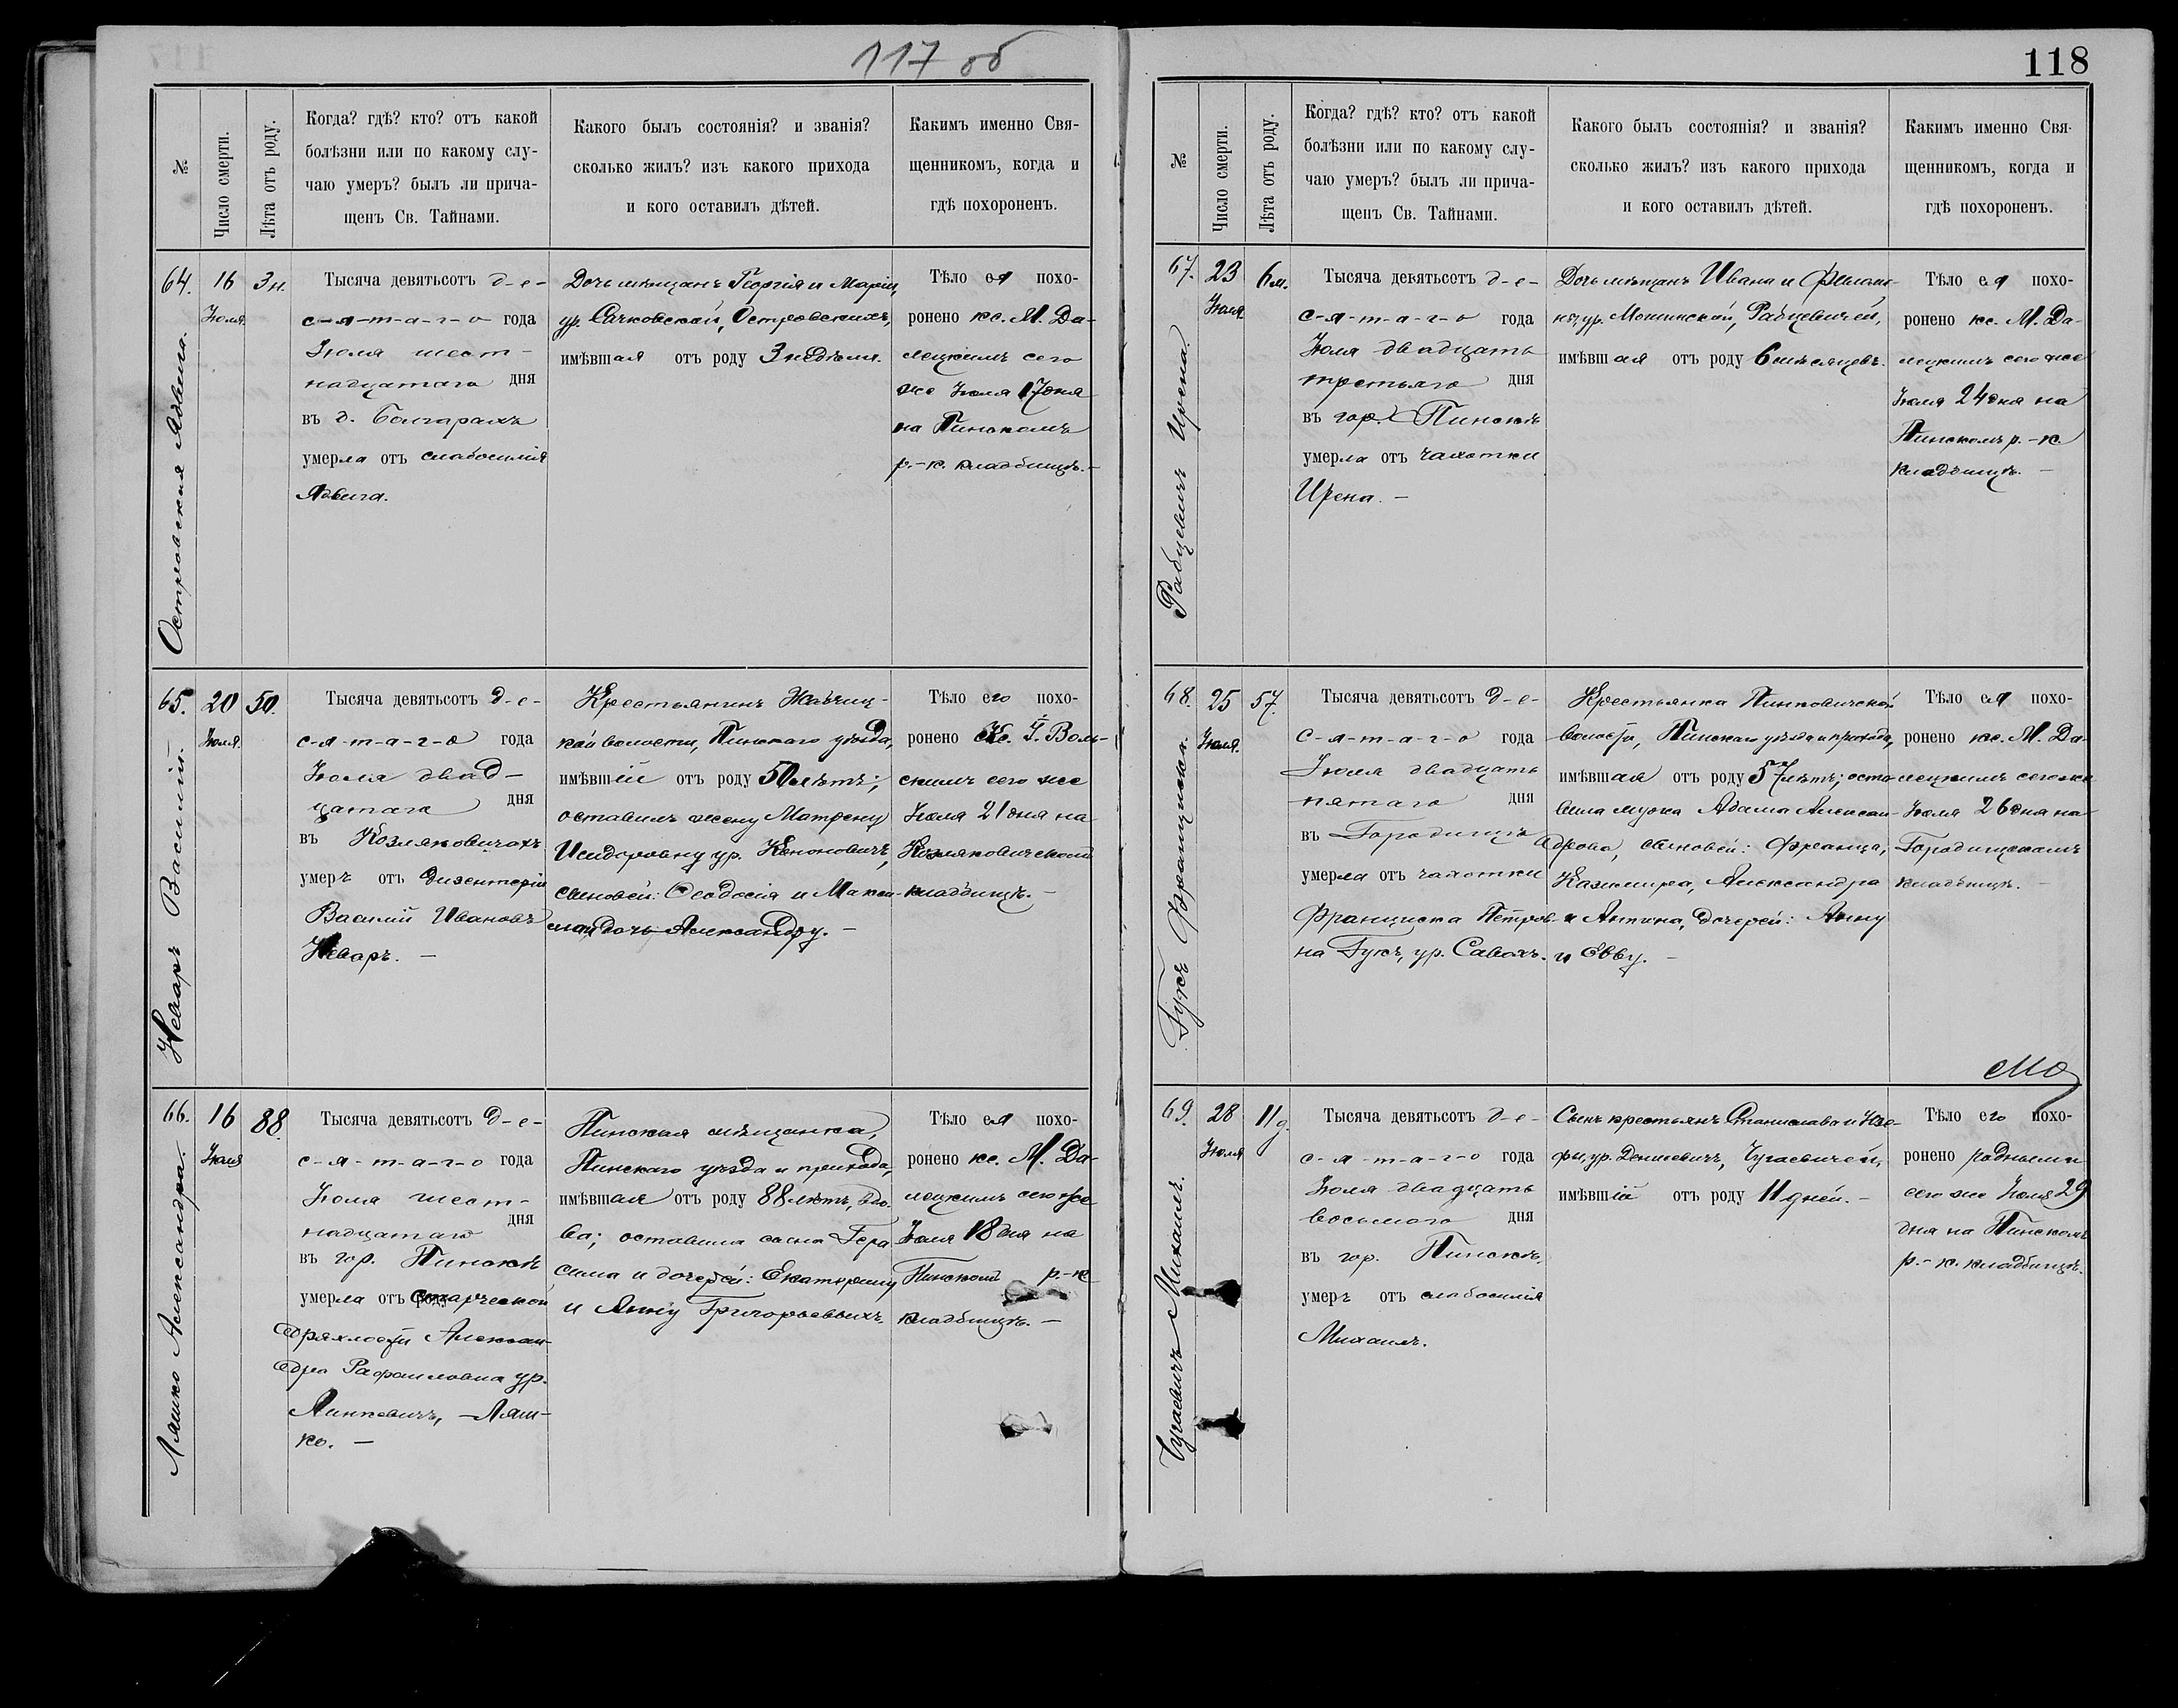 117 об
№
Число смерти.
Лѣта отъ роду.
Когда? гдѣ? кто? отъ какой
болѣзни или по какому слу-
чаю умеръ? былъ ли прича-
щенъ Св. Тайнами.
Какого былъ состоянія? и званія?
сколько жилъ? изъ какого прихода
и кого оставилъ дѣтей.
Какимъ именно Свя-
щенникомъ, когда и
гдѣ похороненъ.
64.
Островская Ядвига.
16
Іюля.
3 н.
Тысяча девятьсотъ д-е-
с-я-т-а-г-о года
Іюля шест-
надцатаго дня
въ д. Болгарахъ
умерла отъ слабосилія
Ядвига.
Дочь мѣщанъ Георгія и Маріи,
ур. Сачковской, Островскихъ,
имѣвшая отъ роду 3 недѣли.
Тѣло ея похо-
ронено кс. М. Да-
лецкимъ сего
же Іюля 17 дня
на Пинскомъ
р.-к. кладбищѣ.-
65.
Неваръ Василій.
20
Іюля.
50.
Тысяча девятьсотъ д-е-
с-я-т-а-г-о года
Іюля двад-
цатаго дня
въ Козляковичахъ
умеръ отъ дизентеріи
Василій Ивановъ
Неваръ. -
Крестьянинъ Жабчиц-
кой волости, Пинскаго уѣзда,
имѣвшій отъ роду 50 лѣтъ;
оставилъ жену Матрену
Исидоровну ур. Кононовичъ,
сыновей: Ѳеодосія и Макси-
ма и дочь Александру. -
Тѣло его похо-
ронено Кс. І. Воль-
скимъ сего же
Іюля 21 дня на
Козляковичскомъ
кладбищѣ. -
66.
Ляшко Александра.
16
Іюля
88.
Тысяча девятьсотъ д-е-
с-я-т-а-г-о года
Іюля шест-
надцатаго дня
въ гор. Пинскѣ
умерла отъ старческой
дряхлости Алексан-
дра Рафаиловна ур.
Линкевичъ, -Ляш-
ко. -
Пинская мѣщанка,
Пинскаго уѣзда и прихода,
имѣвшая отъ роду 88 лѣтъ, вдо-
ва; оставила сына Гера
сима и дочерей: Екатерину
и Анну Григорьевыхъ.
Тѣло ея похо-
ронено кс. М. Да-
лецкимъ сего же
Іюля 18 дня на
Пинскомъ р.-к
кладбищѣ. -
118
№
Число смерти.
Лѣта отъ роду.
Когда? гдѣ? кто? отъ какой
болѣзни или по какому слу-
чаю умеръ? былъ ли прича-
щенъ Св. Тайнами.
Какого былъ состоянія? и званія?
сколько жилъ? изъ какого прихода
и кого оставилъ дѣтей.
Какимъ именно Свя-
щенникомъ, когда и
гдѣ похороненъ.
67.
Рабцевичъ Ирена.
23
Іюля
6 м.
Тысяча девятьсотъ д-е-
с-я-т-а-г-о года
Іюля двадцать
третьяго дня
въ гор. Пинскѣ
умерла отъ чахотки
Ирена. -
Дочь мѣщанъ Ивана и
ур. Рабцевичей,
имѣвшая отъ роду 6 мѣсяцевъ.
Тѣло ея похо-
ронено кс. М. Да-
лецкимъ сего же
Іюля 24 дня на
Пинскомъ р.-к.
кладбищѣ. -
68.
Гукъ Франциска.
25
Іюля.
57.
Тысяча девятьсотъ д-е-
с-я-т-а-г-о года
Іюля двадцать
пятаго дня
въ Городищѣ
умерла отъ чахотки
Франциска Петров-
на Гукъ, ур. Савохъ.
Крестьянка Пинковичской
волости, Пинскаго уѣзда и прихода,
имѣвшая отъ роду 57 лѣтъ; оста
вила мужа Адама Алексан-
дрова, сыновей: Франца,
Казимира, Александра
и Антина, дочерей: Анну
и Евву. -
Тѣло ея похо-
ронено кс. М. Да-
лецкимъ сего же
Іюля 26 дня на
Городищскомъ
кладбищѣ. -
69.
Чугаевичъ Михаилъ.
28
Іюля
11 д.
Тысяча девятьсотъ д-е-
с-я-т-а-г-о года
Іюля двадцать
восьмого дня
въ гор. Пинскѣ,
умеръ отъ слабосилія
Михаилъ.
Сынъ крестьянъ Станислава и Юзе-
фы, ур. Денисевичъ, Чугаевичей,
имѣвшій отъ роду 11 дней. -
Тѣло его похо-
ронено родными
сего же Іюля 29
дня на Пинскомъ
р.-к. кладбищѣ.